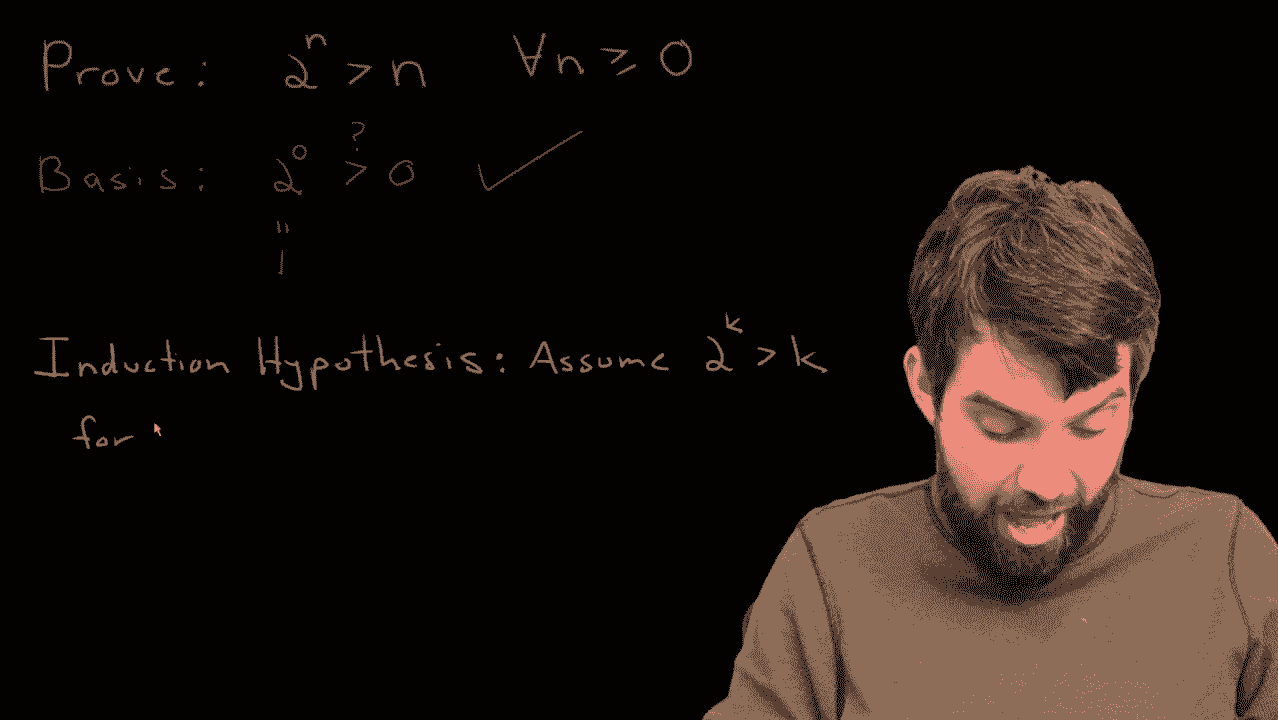 Prove: 2^n > n ∀n ≥ 0
Basis: 2^0 >^? 0 ✓
"
1
Induction Hypothesis: Assume 2^k > k
for